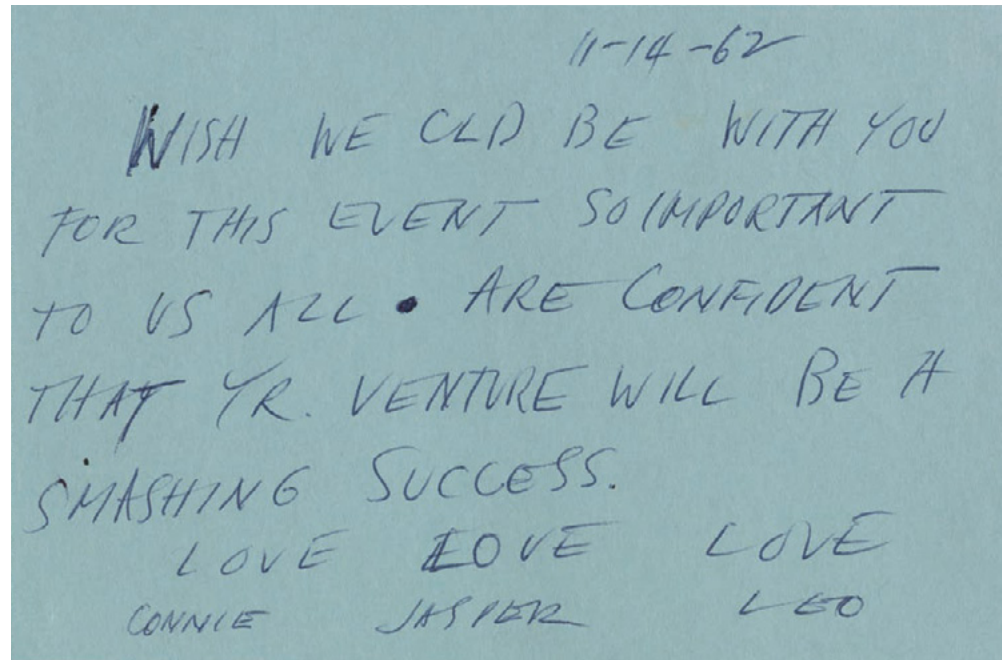 11-14-62
WISH WE CLD BE WITH YOU
FOR THIS EVENT SO IMPORTANT
TO US ALL. ARE CONFIDENT
THAT YR. VENTURE WILL BE A
SMASHING SUCCESS.
LOVE LOVE LOVE
CONNIE JASPER LEO